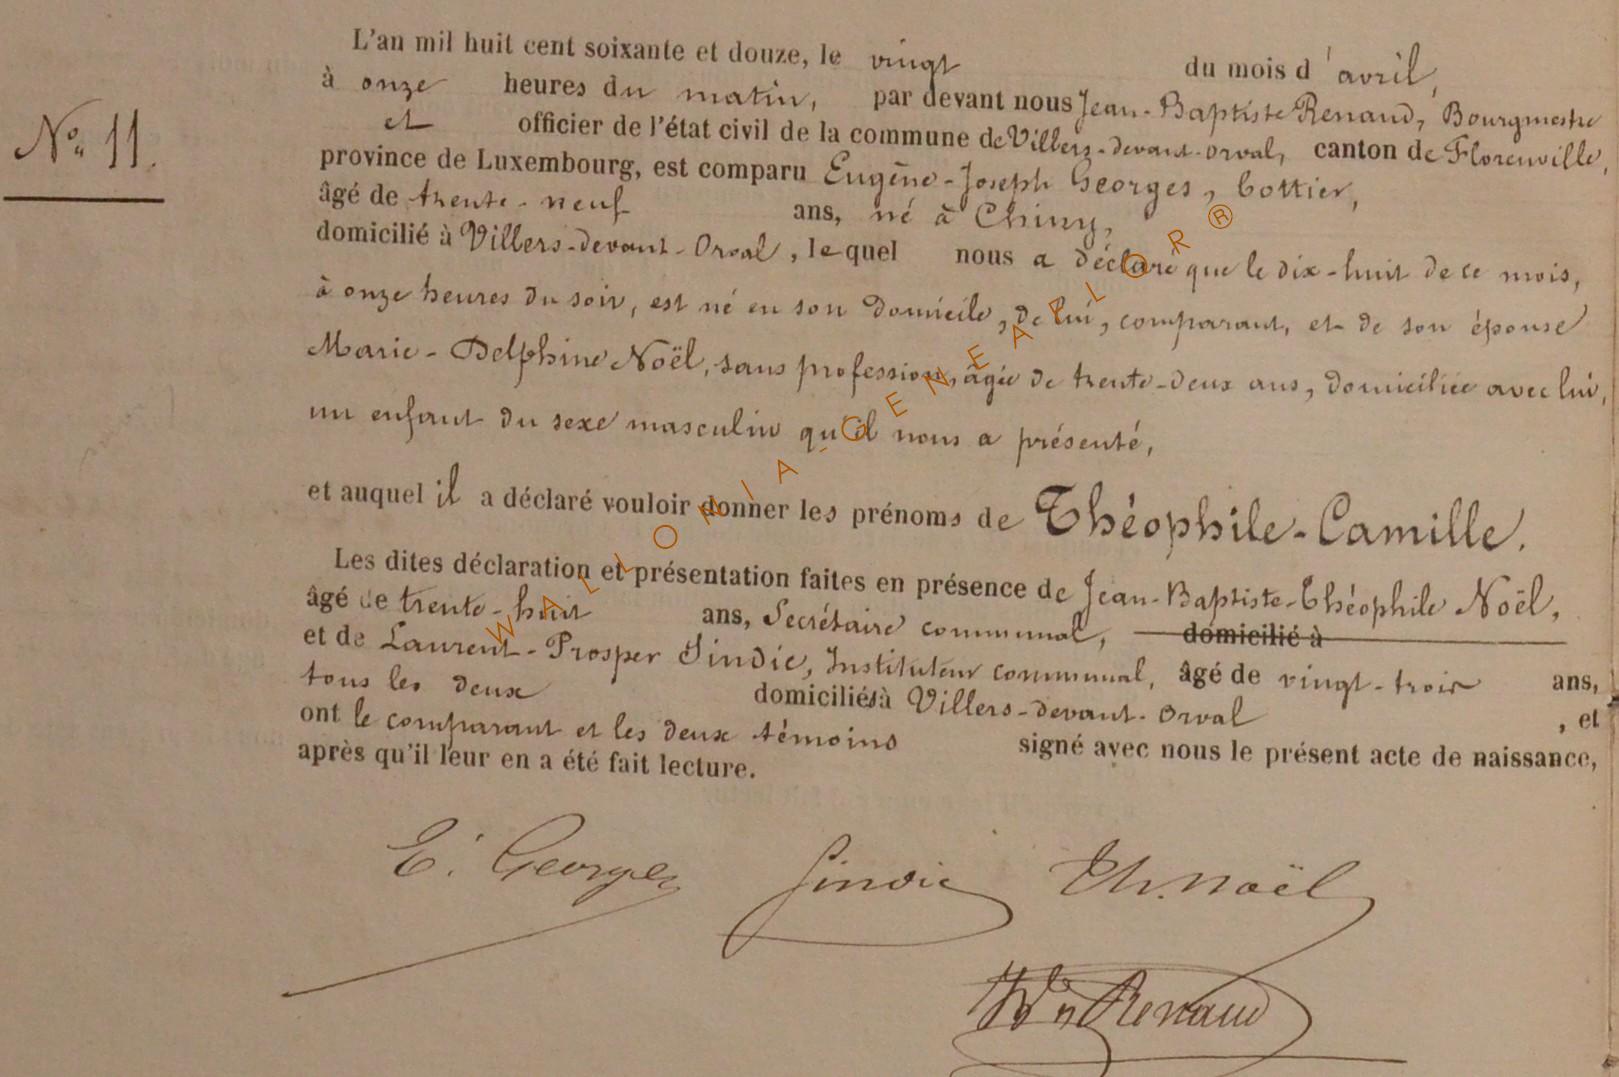 L'an mil huit cent soixante et douze, le vingt du mois d'avril,
à onze heures du matin, par devant nous Jean-Baptiste Renaud, Bourgmestre
No 11.
et officier de l'état civil de la commune de Villers-devant-Orval, canton de Florenville,
province de Luxembourg, est comparu Eugène-Joseph Georges, Cottier,
âgé de trente-neuf ans, né à Chiny,
domicilié à Villers-devant-Orval, lequel nous a déclaré que le dix-huit de ce mois,
à onze heures du soir, est né en son domicile, de lui, comparant, et de son épouse
Marie-Delphine Noël, sans profession, âgée de trente-deux ans, domiciliée avec lui,
un enfant du sexe masculin qu'il nous a présenté,
et auquel il a déclaré vouloir donner les prénoms de Théophile-Camille.
Les dites déclaration et présentation faites en présence de Jean-Baptiste-Théophile Noël,
âgé de trente-huit ans, Secrétaire communal, domicilié à
et de Laurent-Prosper Sindic, Instituteur communal, âgé de vingt-trois ans,
tous les deux domiciliés à Villers-devant-Orval , et
ont le comparant et les deux témoins signé avec nous le présent acte de naissance,
après qu'il leur en a été fait lecture.
E. Georges Sindic Th. Noël
Renaud
WALLONIA-GENEAFLOR®